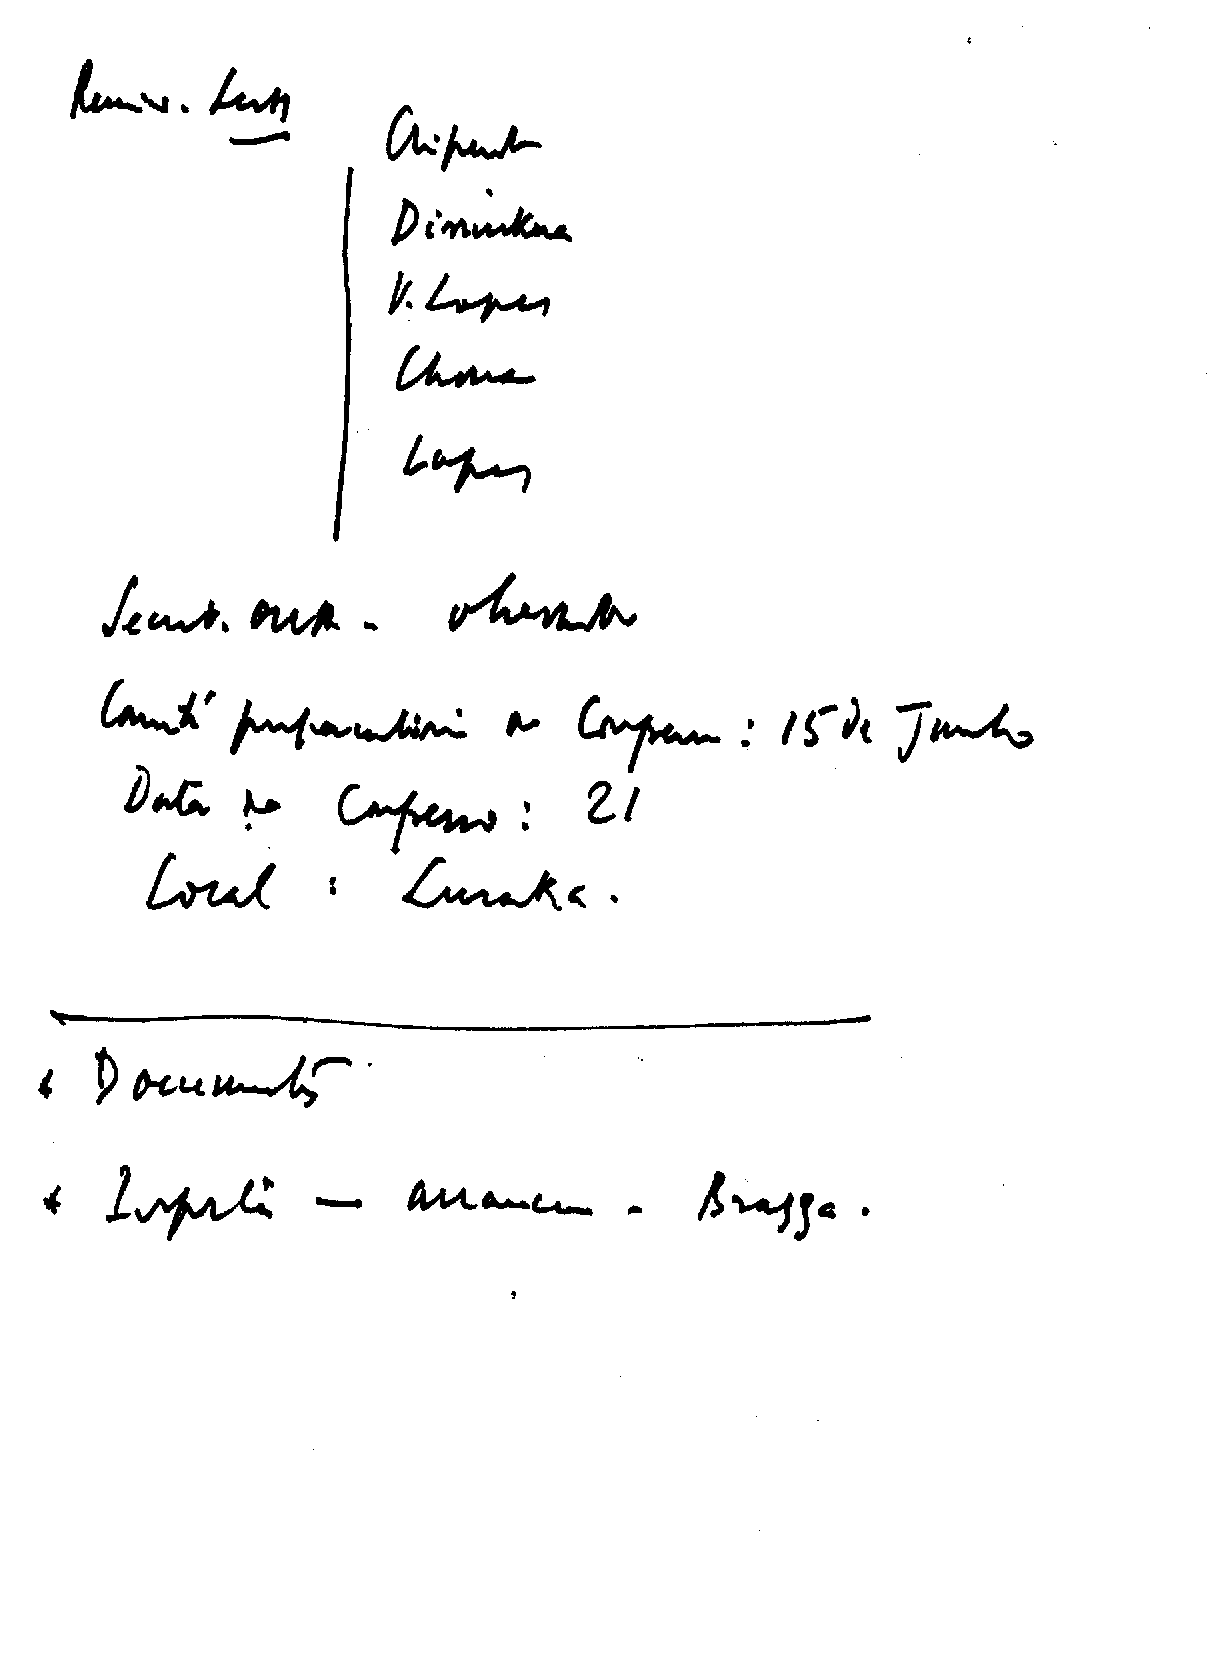 Chipenda
V. Lopes
Chona
Lopes
Secret. OUA -
Comité preparatório do Congresso: 15 de Junho
Data do Congresso: 21
Local : Lusaka.
* Documentos
* — - Bragga.